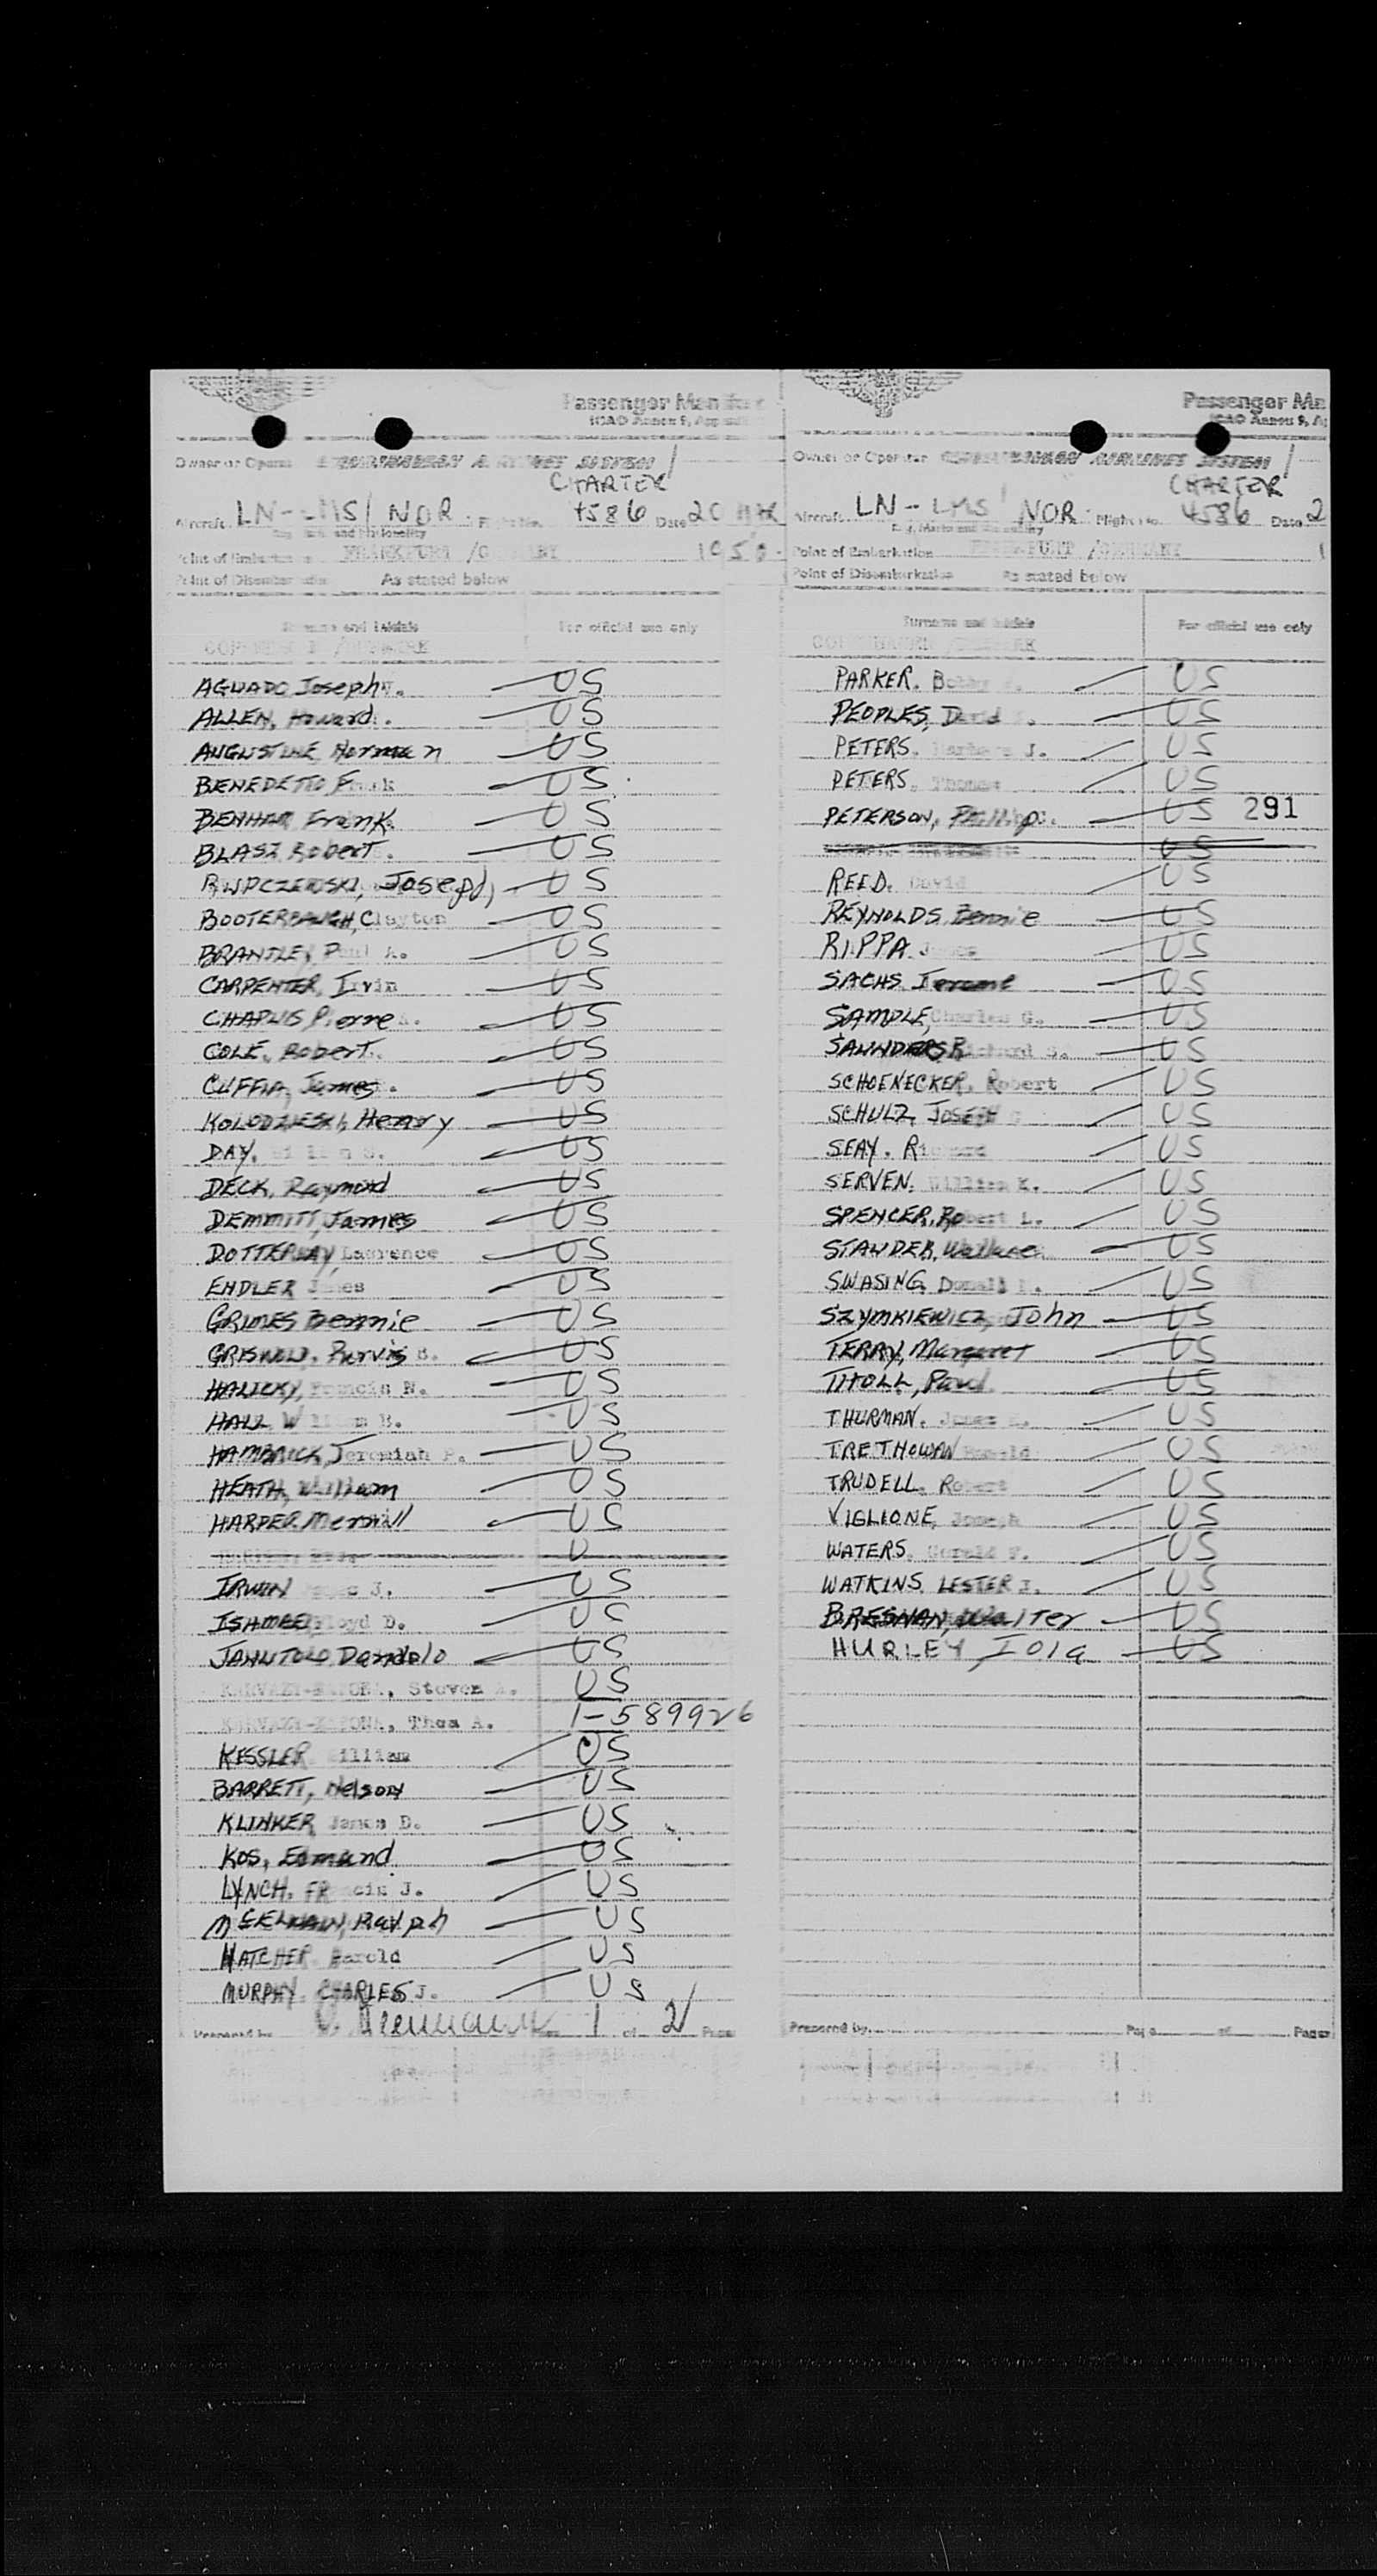 Passenger Man
ICAO Annex 9,
Owner or Opera AIRLINES SYSTEM /
CHARTER
Aircraft LN-LMS / NOR 4586 Date 20
Marks and Nationality
Point of Embarkation FRANKFURT / GERMANY 1950
As stated below
Surname and initials For official use only
AGUADO Joseph US
ALLEN, Howard. US
AUGUSTINE Norman US
BENEDETTO Frank US
BENHAR Frank. US
BLASZ Robert. US
Joseph US
BOOTERBAUGH, Clayton US
BRANTLEY Paul A. US
CARPENTER, Irvin US
CHAPUIS Pierre US
COLE, Robert. US
CUFFIA, James. US
KOLODZIESKI, Henry US
DAY. US
DECK, Raymond US
DEMMITT, James US
DOTTERWAY, Laurence US
ENDLER James US
GRIMES Bennie US
GRISWOLD, Purvis B. US
HALICKY, Francis N. US
HALL William B. US
HAMBRICK, Jeremiah P. US
HEATH, William US
HARPER Merrill US
U
IRWIN J. US
Floyd D. US
US
KARVAZY-KATONA, Steven A. US
KARVAZY-KATONA, Thea A. 1-589926
KESSLER William US
BARRETT, Nelson US
KLINKER James D. US
KOS, Edmund US
LYNCH, Francis J. US
Ralph US
HATCHER Harold US
MURPHY CHARLES J. US
1 of 2 Pages
Passenger Ma
ICAO Annex 9, A
Owner or Operator AIRLINES SYSTEM /
CHARTER
Aircraft LN-LMS / NOR Flight No. 4586 Date 2
Point of Embarkation FRANKFURT / GERMANY 1
Point of Disembarkation As stated below
Surname and initials For official use only
PARKER. Bobby US
PEOPLES, David US
PETERS. Barbara J. US
PETERS. Thomas US
PETERSON, Phillip US 291
US
REED. David US
REYNOLDS Bennie US
RIPPA US
SACHS Jerome US
SAMPLE, Charles G. US
SAUNDERS Richard S. US
SCHOENECKER, Robert US
SCHULZ, JOSEPH US
SEAY. Richard US
SERVEN. William K. US
SPENCER, Robert L. US
STANDER, Wallace US
SWASING Donald US
SZYMKIEWICZ, John US
TERRY, Margaret US
Paul US
THURMAN. James US
TRETHOWAN Ronald US
TRUDELL. Robert US
VIGLIONE, Joseph US
WATERS. Gerald F. US
WATKINS LESTER J. US
BRESNAN, Walter US
HURLEY, Iola US
Prepared by Page of Pages